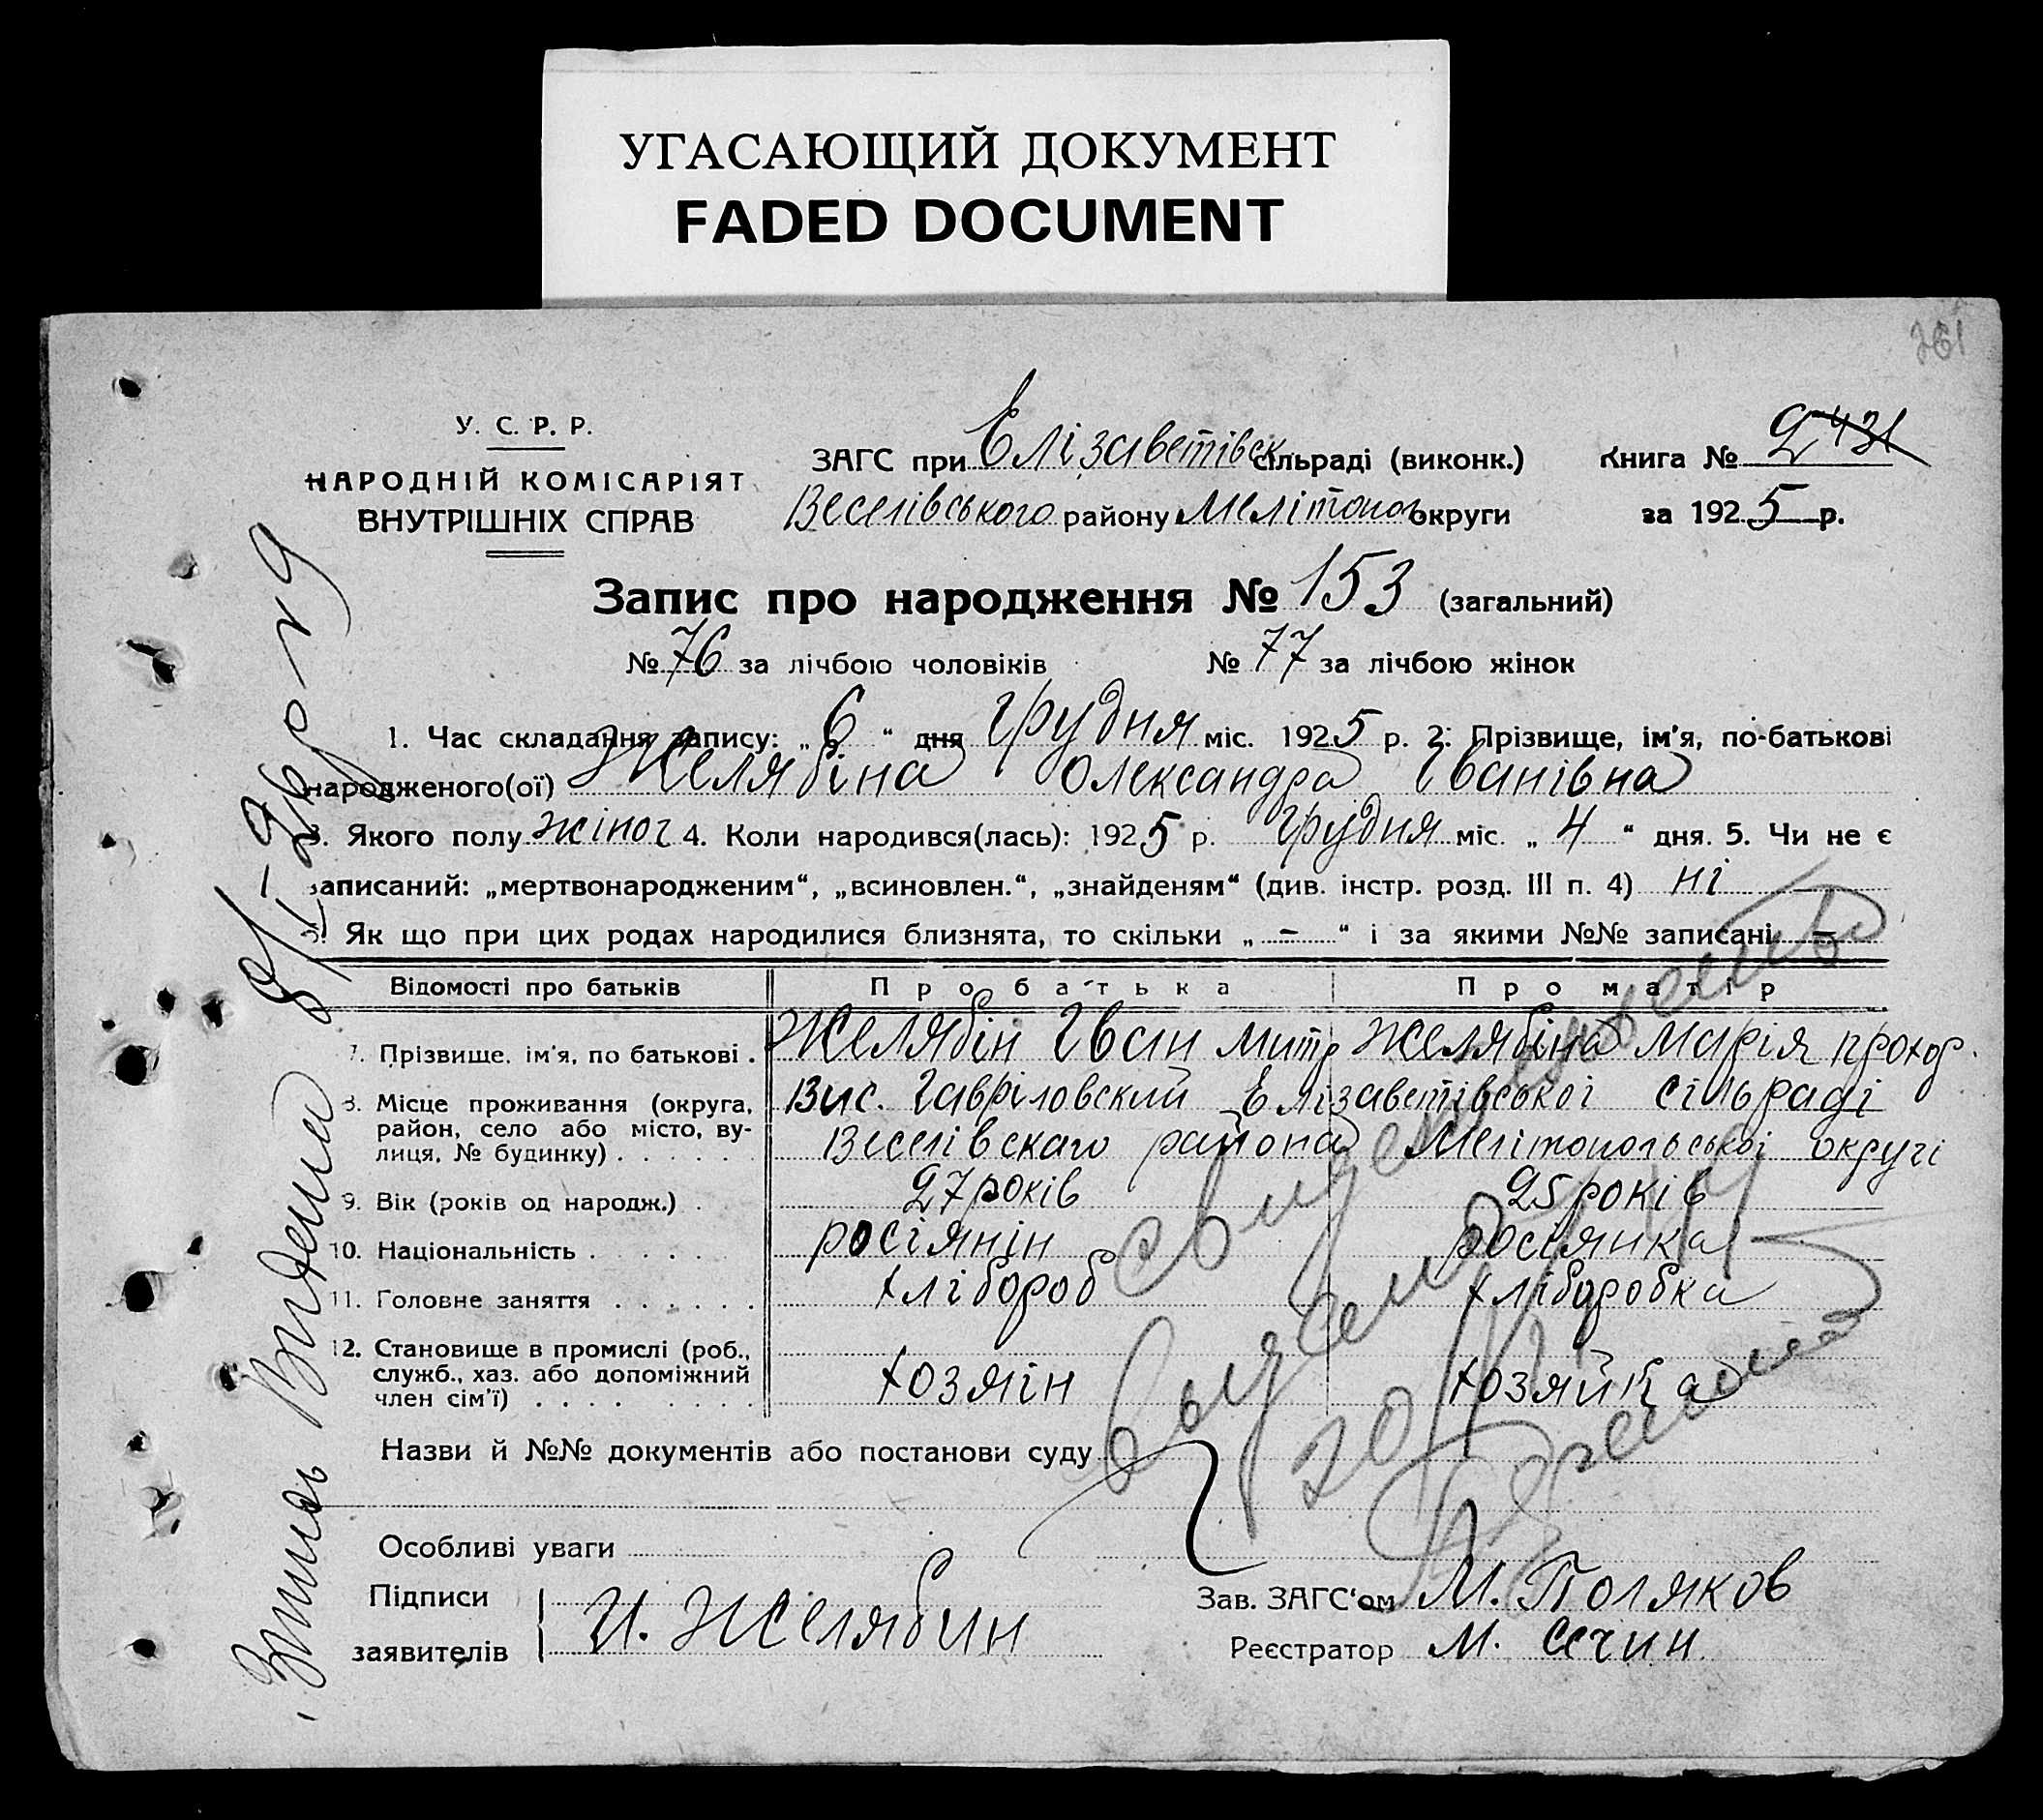 УГАСАЮЩИЙ ДОКУМЕНТ
FADED DOCUMENT
261
У. С. Р. Р.
НАРОДНІЙ КОМІСАРІЯТ
ВНУТРІШНІХ СПРАВ
ЗАГС при Елізаветівск сільраді (виконк.)
Веселівського району Мелітопол округи
Книга № 2 431
за 1925 р.
Запис про народження № 153 (загальний)
№ 76 за лічбою чоловіків № 77 за лічбою жінок
1. Час складання запису: „ 6 “ дня грудня міс. 1925 р. 2. Прізвище, ім'я, по-батькові
народженого(ої) Желябіна Олександра Іванівна
3. Якого полу жіноч 4. Коли народився(лась): 1925 р. грудня міс. „ 4 “ дня. 5. Чи не є
записаний: „мертвонародженим“, „всиновлен.“, „знайденям“ (див. інстр. розд. III п. 4) ні
Як що при цих родах народилися близнята, то скільки „ – “ і за якими №№ записані –
Відомості про батьків Про батька Про матір
7. Прізвище, ім'я, по батькові . Желябін Іван Митр Желябіна Марія Прохор.
8. Місце проживання (округа, Вис. Гавріловский Елізаветівської сільраді
район, село або місто, ву- Веселівскаго района Мелітопольської округі
лиця, № будинку) . . . . . .
9. Вік (років од народж.) . 27 років 25 років
10. Національність . . . . . . росіянін росіянка
11. Головне заняття . . . . . . хлібороб хліборобка
12. Становище в промислі (роб.,
служб., хаз. або допоміжний хозяін хозяйка
член сім'ї) . . . . . . . .
Назви й №№ документів або постанови суду
Особливі уваги
Підписи
заявителів И. Желябин
Зав. ЗАГС'ом М. Поляков
Реєстратор М. Сечин
свидетельство
выдано